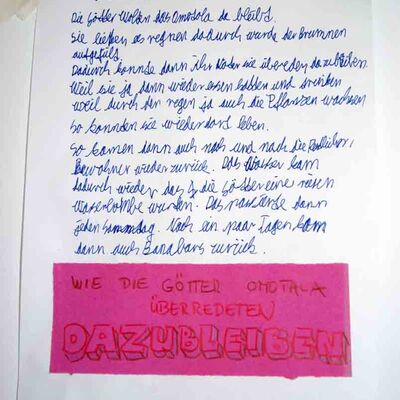 Die Götter wolten das Omotola da bleibt.
Sie ließen es regnen dadurch wurde der Brunnen
aufgefült.
Dadurch konnte dann ihr Vater sie übereden dazubleiben.
Weil sie ja dann wieder essen hatten und trinken
weil durch den regen ja auch die Pflanzen wachsen
So konnten sie wieder dort leben.
So kamen dann auch nach und nach die Restlichen
Bewohner wieder zurück. Das Wasser kam
dadurch wieder das die Götter eine risen
Wasserbombe warfen. Das passierte dann
jeden samstag. Nach ein paar Tagen kam
dann auch zurück.
WIE DIE GÖTTER OMOTALA
ÜBERREDETEN
DAZUBLEIBEN